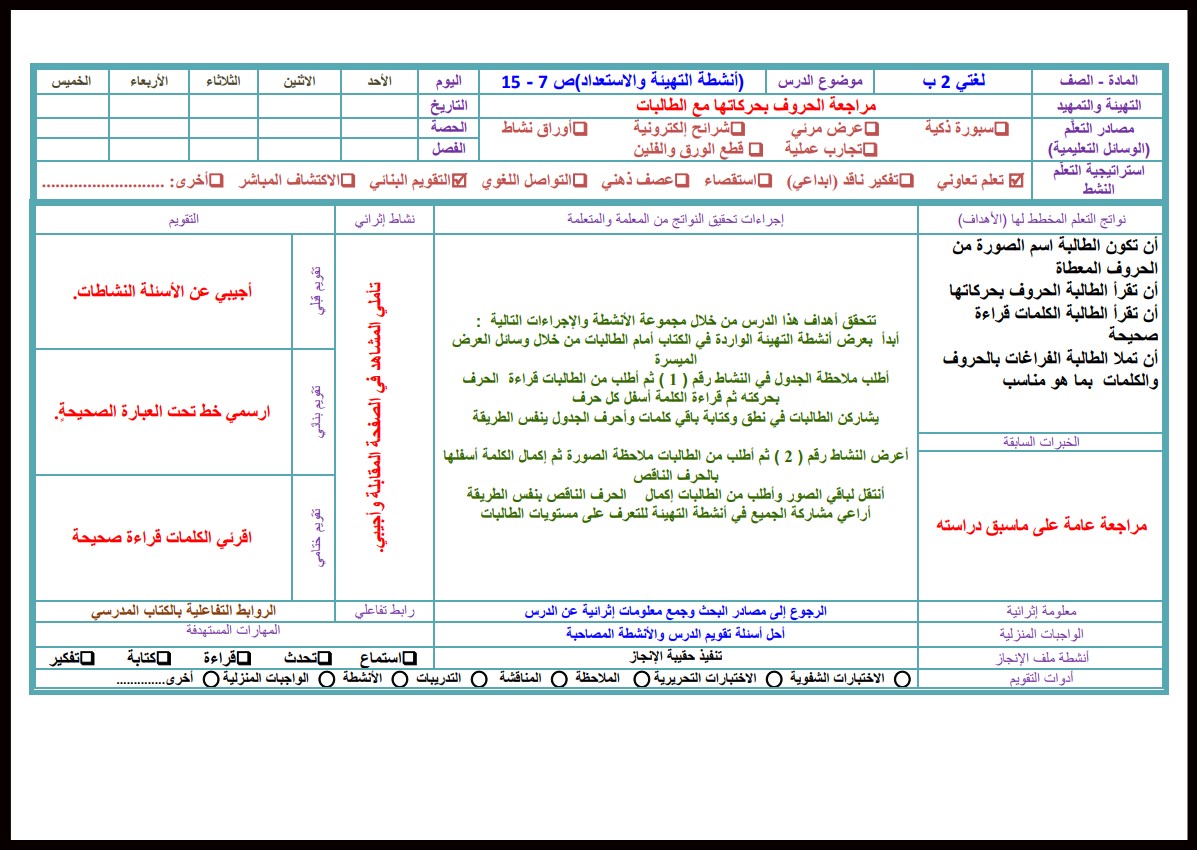 المادة - الصف لغتي 2 ب موضوع الدرس (أنشطة التهيئة والاستعداد)ص 7 - 15 اليوم الأحد الاثنين الثلاثاء الأربعاء الخميس
التهيئة والتمهيد مراجعة الحروف بحركاتها مع الطالبات التاريخ
مصادر التعلّم (الوسائل التعليمية)
❑سبورة ذكية ❑عرض مرئي ❑شرائح إلكترونية ❑أوراق نشاط
❑تجارب عملية ❑ قطع الورق والفلين
الحصة
الفصل
استراتيجية التعلّم النشط
☑ تعلم تعاوني ❑تفكير ناقد (ابداعي) ❑استقصاء ❑عصف ذهني ❑التواصل اللغوي ☑التقويم البنائي ❑الاكتشاف المباشر ❑أخرى: ..........................
نواتج التعلم المخطط لها (الأهداف) إجراءات تحقيق النواتج من المعلمة والمتعلمة نشاط إثرائي التقويم
أن تكون الطالبة اسم الصورة من
الحروف المعطاة
أن تقرأ الطالبة الحروف بحركاتها
أن تقرأ الطالبة الكلمات قراءة
صحيحة
أن تملا الطالبة الفراغات بالحروف
والكلمات بما هو مناسب
الخبرات السابقة
مراجعة عامة على ماسبق دراسته
تتحقق أهداف هذا الدرس من خلال مجموعة الأنشطة والإجراءات التالية :
أبدأ بعرض أنشطة التهيئة الواردة في الكتاب أمام الطالبات من خلال وسائل العرض
الميسرة
أطلب ملاحظة الجدول في النشاط رقم ( 1 ) ثم أطلب من الطالبات قراءة الحرف
بحركته ثم قراءة الكلمة أسفل كل حرف
يشاركن الطالبات في نطق وكتابة باقي كلمات وأحرف الجدول بنفس الطريقة
أعرض النشاط رقم ( 2 ) ثم أطلب من الطالبات ملاحظة الصورة ثم إكمال الكلمة أسفلها
بالحرف الناقص
أنتقل لباقي الصور وأطلب من الطالبات إكمال الحرف الناقص بنفس الطريقة
أراعي مشاركة الجميع في أنشطة التهيئة للتعرف على مستويات الطالبات
تأملي المشاهد في الصفحة المقابلة وأجيبي.
تقويم قبلي
أجيبي عن الأسئلة النشاطات.
تقويم بنائي
ارسمي خط تحت العبارة الصحيحةٍ.
تقويم ختامي
اقرئي الكلمات قراءة صحيحة
معلومة إثرائية الرجوع إلى مصادر البحث وجمع معلومات إثرائية عن الدرس رابط تفاعلي الروابط التفاعلية بالكتاب المدرسي
الواجبات المنزلية أحل أسئلة تقويم الدرس والأنشطة المصاحبة المهارات المستهدفة
أنشطة ملف الإنجاز تنفيذ حقيبة الإنجاز ❑استماع ❑تحدث ❑قراءة ❑كتابة ❑تفكير
أدوات التقويم ○ الاختبارات الشفوية ○ الاختبارات التحريرية ○ الملاحظة ○ المناقشة ○ التدريبات ○ الأنشطة ○ الواجبات المنزلية ○ أخرى..............